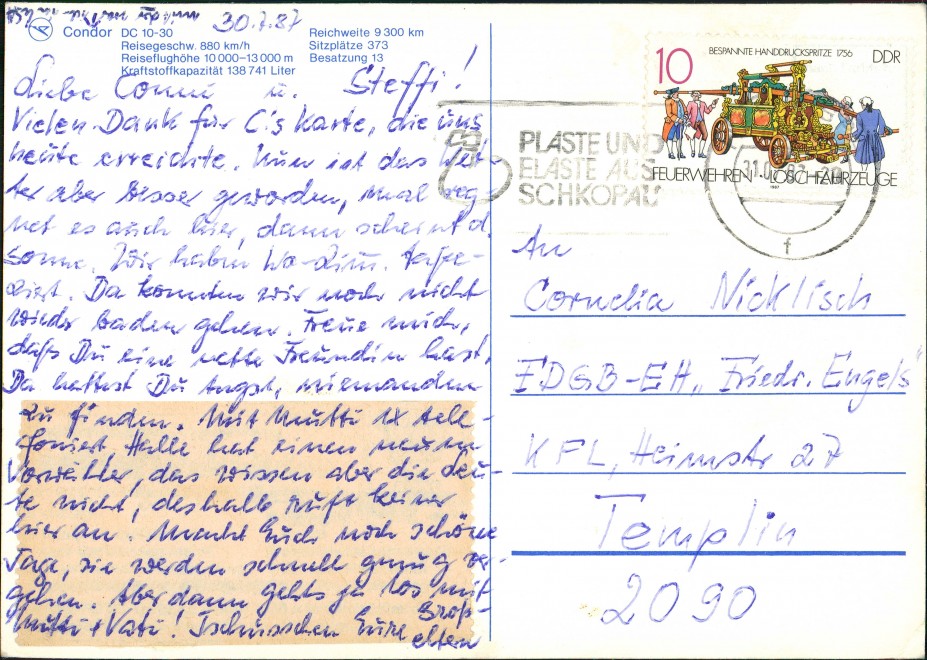 30.7.87
Condor DC 10-30
Reisegeschw. 880 km/h
Reiseflughöhe 10 000–13 000 m
Kraftstoffkapazität 138 741 Liter
Reichweite 9 300 km
Sitzplätze 373
Besatzung 13
Liebe Conni u. Steffi!
Vielen Dank für C's Karte, die uns
heute erreichte. Nun ist das Wet-
ter aber besser geworden, mal reg-
net es auch hier, dann scheint d.
Sonne. Wir haben Wo-Zim. tape-
ziert. Da konnten wir noch nicht
wieder baden gehen. Freue mich,
daß Du eine nette Freundin hast.
Da hattest Du Angst, niemanden
zu finden. Mit Mutti 1x tele-
foniert, Halle hat einen neuen
Vorwähler, das wissen aber die Leu-
te nicht, deshalb ruft keiner
hier an. Macht Euch noch schöne
Tage, sie werden schnell genug ver-
gehen. Aber dann gehts ja los mit
Mutti + Vati! Tschüsschen Eure Groß-
eltern
10
BESPANNTE HANDDRUCKSPRITZE 1756
DDR
FEUERWEHREN · LÖSCHFAHRZEUGE
1987
PLASTE UND
ELASTE AUS
SCHKOPAU
f
An
Cornelia Nicklisch
FDGB-EH „Friedr. Engels“
KFL, Heimstr 27
Templin
2090